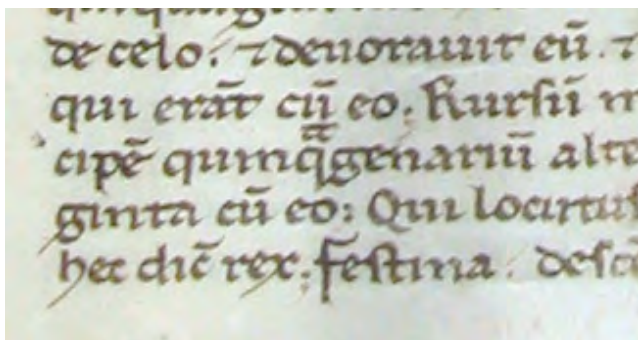 de celo. ⁊ deuorauit eū. ⁊
qui erāt cū eo. Rursū m
cipē quinqᷓgenariū alte
ginta cū eo: Qui locutu
hec dic̄ rex. festina. desce